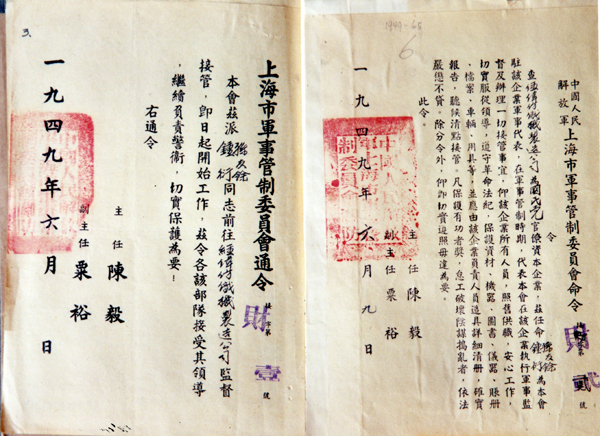 3.
上海市軍事管制委員會通令
財字第壹號
本會茲派孫友餘
鍾衍同志前往經緯紡織機製造公司監督
接管,即日起開始工作,茲令各該部隊接受其領導
,繼續負責警衛,切實保護為要!
右通令
主任 陳毅
副主任 粟裕
一九四九年六月 日
6
中國人民
解放軍上海市軍事管制委員會命令
財字第貳號
令
查經緯紡織機製造公司為國民党官僚資本企業,茲任命孫友餘
鍾衍為本會
駐該企業軍事代表,在軍事管制時期,代表本會在該企業執行軍事監
督及辦理一切接管事宜,仰該企業所有人員,照舊供職,安心工作,
切實服從領導,遵守革命法紀,保護資材、機器、圖書、儀器、賬冊
、檔案、車輛、用具等,並應由該企業負責人員造具詳細清冊,確實
報告,聽候清點接管。凡保護有功者獎,怠工破壞陰謀搗亂者,依法
嚴懲不貸。除分令外,仰即切實遵照毋違為要。
此令。
主任 陳毅
副主任 粟裕
一九四九年六月九日